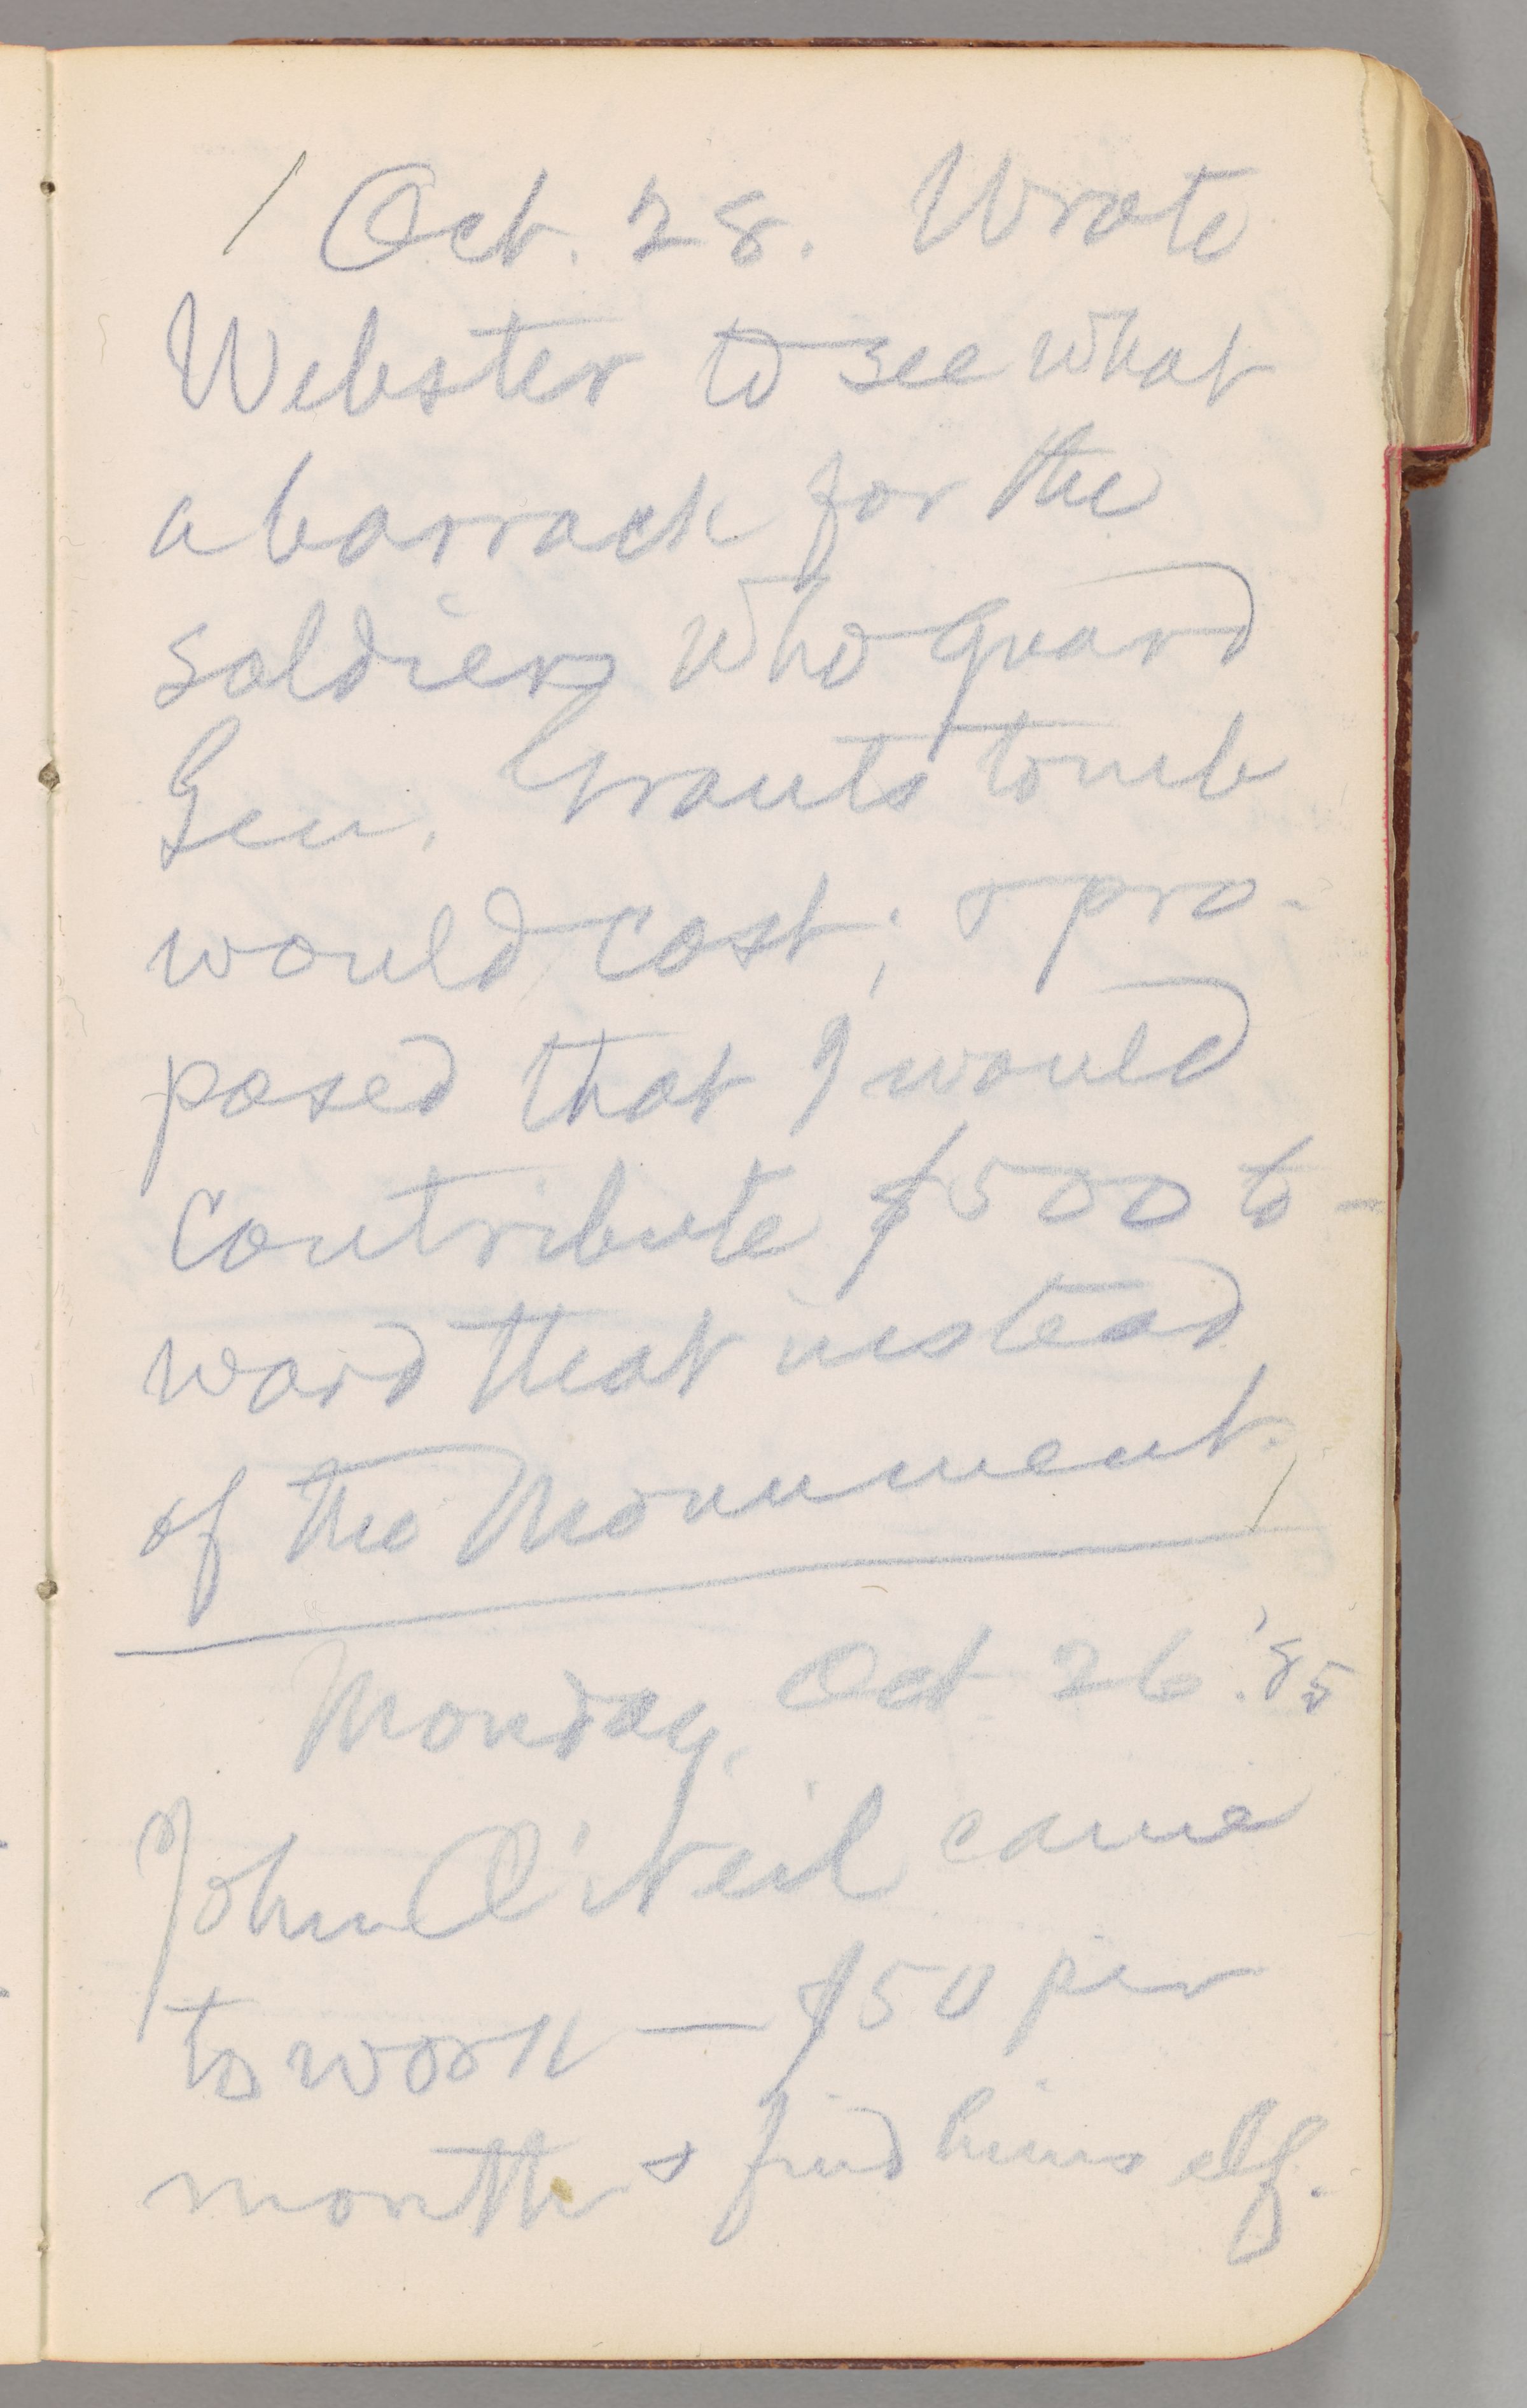 / Oct. 28. Wrote
Webster to see what
a barrack for the
soldiers who guard
Gen. Grants tomb
would cost; & pro-
posed that I would
contribute $500 to-
ward that instead
of the Monument. /
Monday, Oct 26. '85
John O'Neil came
to work — $50 per
month & find himself.